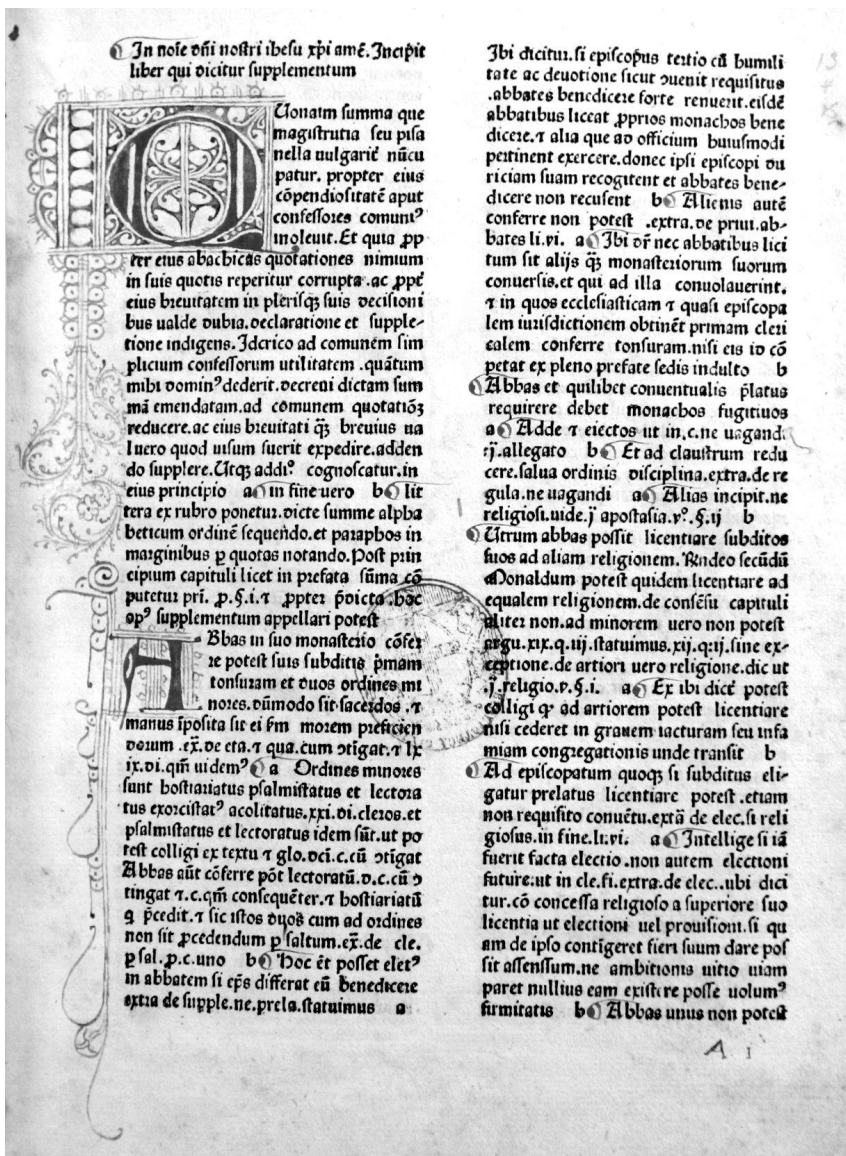 In noīe dn̄i nostri ihesu xp̄i amē. Incipit
liber qui dicitur supplementum
QVoniam summa que
magistrutia seu pisa
nella uulgarit̄ nūcu
patur. propter eius
cōpendiositatē aput
confessores comuniꝰ
inoleuit. Et quia ꝓp
ter eius abachicas quotationes nimium
in suis quotis reperitur corrupta .ac ꝓpt̄
eius breuitatem in plerisqꝫ suis decisioni
bus ualde dubia. declaratione et supple-
tione indigens. Idcirco ad comunem sim
plicium confessorum utilitatem .quātum
mihi dominꝰ dederit. decreui dictam sum
mā emendatam. ad comunem quotatiōꝫ
reducere. ac eius breuitati qꝫ breuius ua
luero quod uisum fuerit expedire. adden
do supplere. Utqꝫ addiꝰ cognoscatur. in
eius principio a in fine uero b lit
tera ex rubro ponetur. dicte summe alpha
beticum ordinē sequendo. et paraphos in
marginibus ꝑ quotas notando. Post prin
cipium capituli licet in prefata sūma cō
putetur pri. p.§.i. ⁊ ꝓpter p̄dicta .hoc
opꝰ supplementum appellari potest
ABbas in suo monasterio cōfer
re potest suis subditis p̄mam
tonsuram et duos ordines mi
nores. dūmodo sit sacerdos .⁊
manus īposita sit ei ẜm morem preficien
dorum .ex̄. de eta. ⁊ qua. cum ↄtigat. ⁊ lx
ix. di. qm̄ uidemꝰ a Ordines minores
sunt hostiariatus psalmistatus et lectora
tus exorcistatꝰ acolitatus. xxi. di. cleros. et
psalmistatus et lectoratus idem sūt. ut po
test colligi ex textu ⁊ glo. dc̄i. c. cū ↄtigat
Abbas aūt cōferre pōt lectoratū. d. c. cū ↄ
tingat ⁊. c. qm̄ consequēter. ⁊ hostiariatū
q p̄cedit. ⁊ sic istos duos cum ad ordines
non sit ꝓcedendum ꝑ saltum. ex̄. de cle.
ꝑ sal. p. c. uno b Hoc ēt posset eletꝰ
in abbatem si ep̄s differat eū benedicere
extra de supple. ne. prela. statuimus a
Ibi dicitur. si episcopus tertio cū humili
tate ac deuotione sicut ↄuenit requisitus
.abbates benedicere forte renuerit. eisdē
abbatibus liceat ꝓprios monachos bene
dicere. ⁊ alia que ad officium huiusmodi
pertinent exercere. donec ipsi episcopi du
riciam suam recogitent et abbates bene-
dicere non recusent b Alienis autē
conferre non potest .extra. de priui. ab-
bates li. vi. a Ibi dr̄ nec abbatibus lici
tum sit alijs qꝫ monasteriorum suorum
conuersis. et qui ad illa conuolauerint.
⁊ in quos ecclesiasticam ⁊ quasi episcopa
lem iurisdictionem obtinēt primam cleri
calem conferre tonsuram. nisi eis id cō
petat ex pleno prefate sedis indulto b
Abbas et quilibet conuentualis p̄latus
requirere debet monachos fugitiuos
a Adde ⁊ eiectos ut in. c. ne uagandi
.ij. allegato b Et ad claustrum redu
cere. salua ordinis disciplina. extra. de re
gula. ne uagandi a Alias incipit. ne
religiosi. uide. j̄ apostasia. vꝰ. §. ij b
Utrum abbas possit licentiare subditos
suos ad aliam religionem. Rn̄deo secūdū
Monaldum potest quidem licentiare ad
equalem religionem. de consēsu capituli
aliter non. ad minorem uero non potest
argu. xix. q. iij. statuimus. xij. q. ij. sine ex-
ceptione. de artiori uero religione. dic ut
.j̄. religio. v. §. i. a Ex ibi dict̄ potest
colligi ꝙ ad artiorem potest licentiare
nisi cederet in grauem iacturam seu infa
miam congregationis unde transit b
Ad episcopatum quoqꝫ si subditus eli-
gatur prelatus licentiare potest .etiam
non requisito conuētu. extā de elec. si reli
giosus. in fine. li. vi. a Intellige si iā
fuerit facta electio .non autem electioni
future. ut in cle. fi. extra. de elec.. ubi dici
tur. cō concessa religioso a superiore suo
licentia ut electioni uel prouisioni. si qu
am de ipso contigeret fieri suum dare pos
sit assensum. ne ambitionis uitio uiam
paret nullius eam existere posse uolumꝰ
firmitatis b Abbas unus non potest
A 1